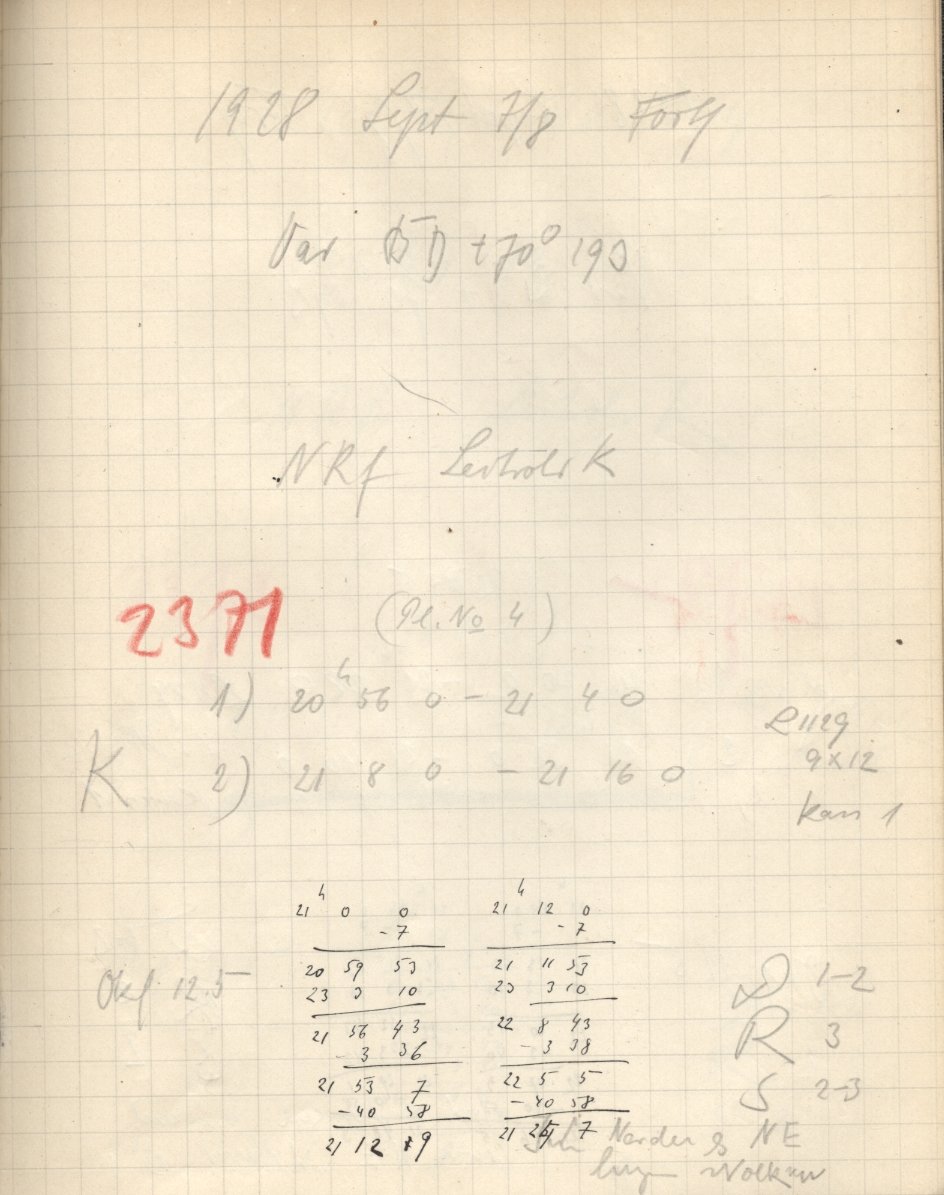 1928 Sept 7/8
Var BD +70° 190
NRf
2371
(Pl. No 4)
1) 20h 56 0 - 21 4 0
K 2) 21 8 0 - 21 16 0
9x12
Kass 1
21h 0 0
-7
20 59 53
23 3 10
21 56 43
-3 36
21 53 7
-40 58
21 12 9
21h 12 0
-7
21 11 53
23 3 10
22 8 43
-3 38
22 5 5
-40 58
21 24 7
Okf 12.5
D 1-2
R 3
S 2-3
Norden & NE
Wolken